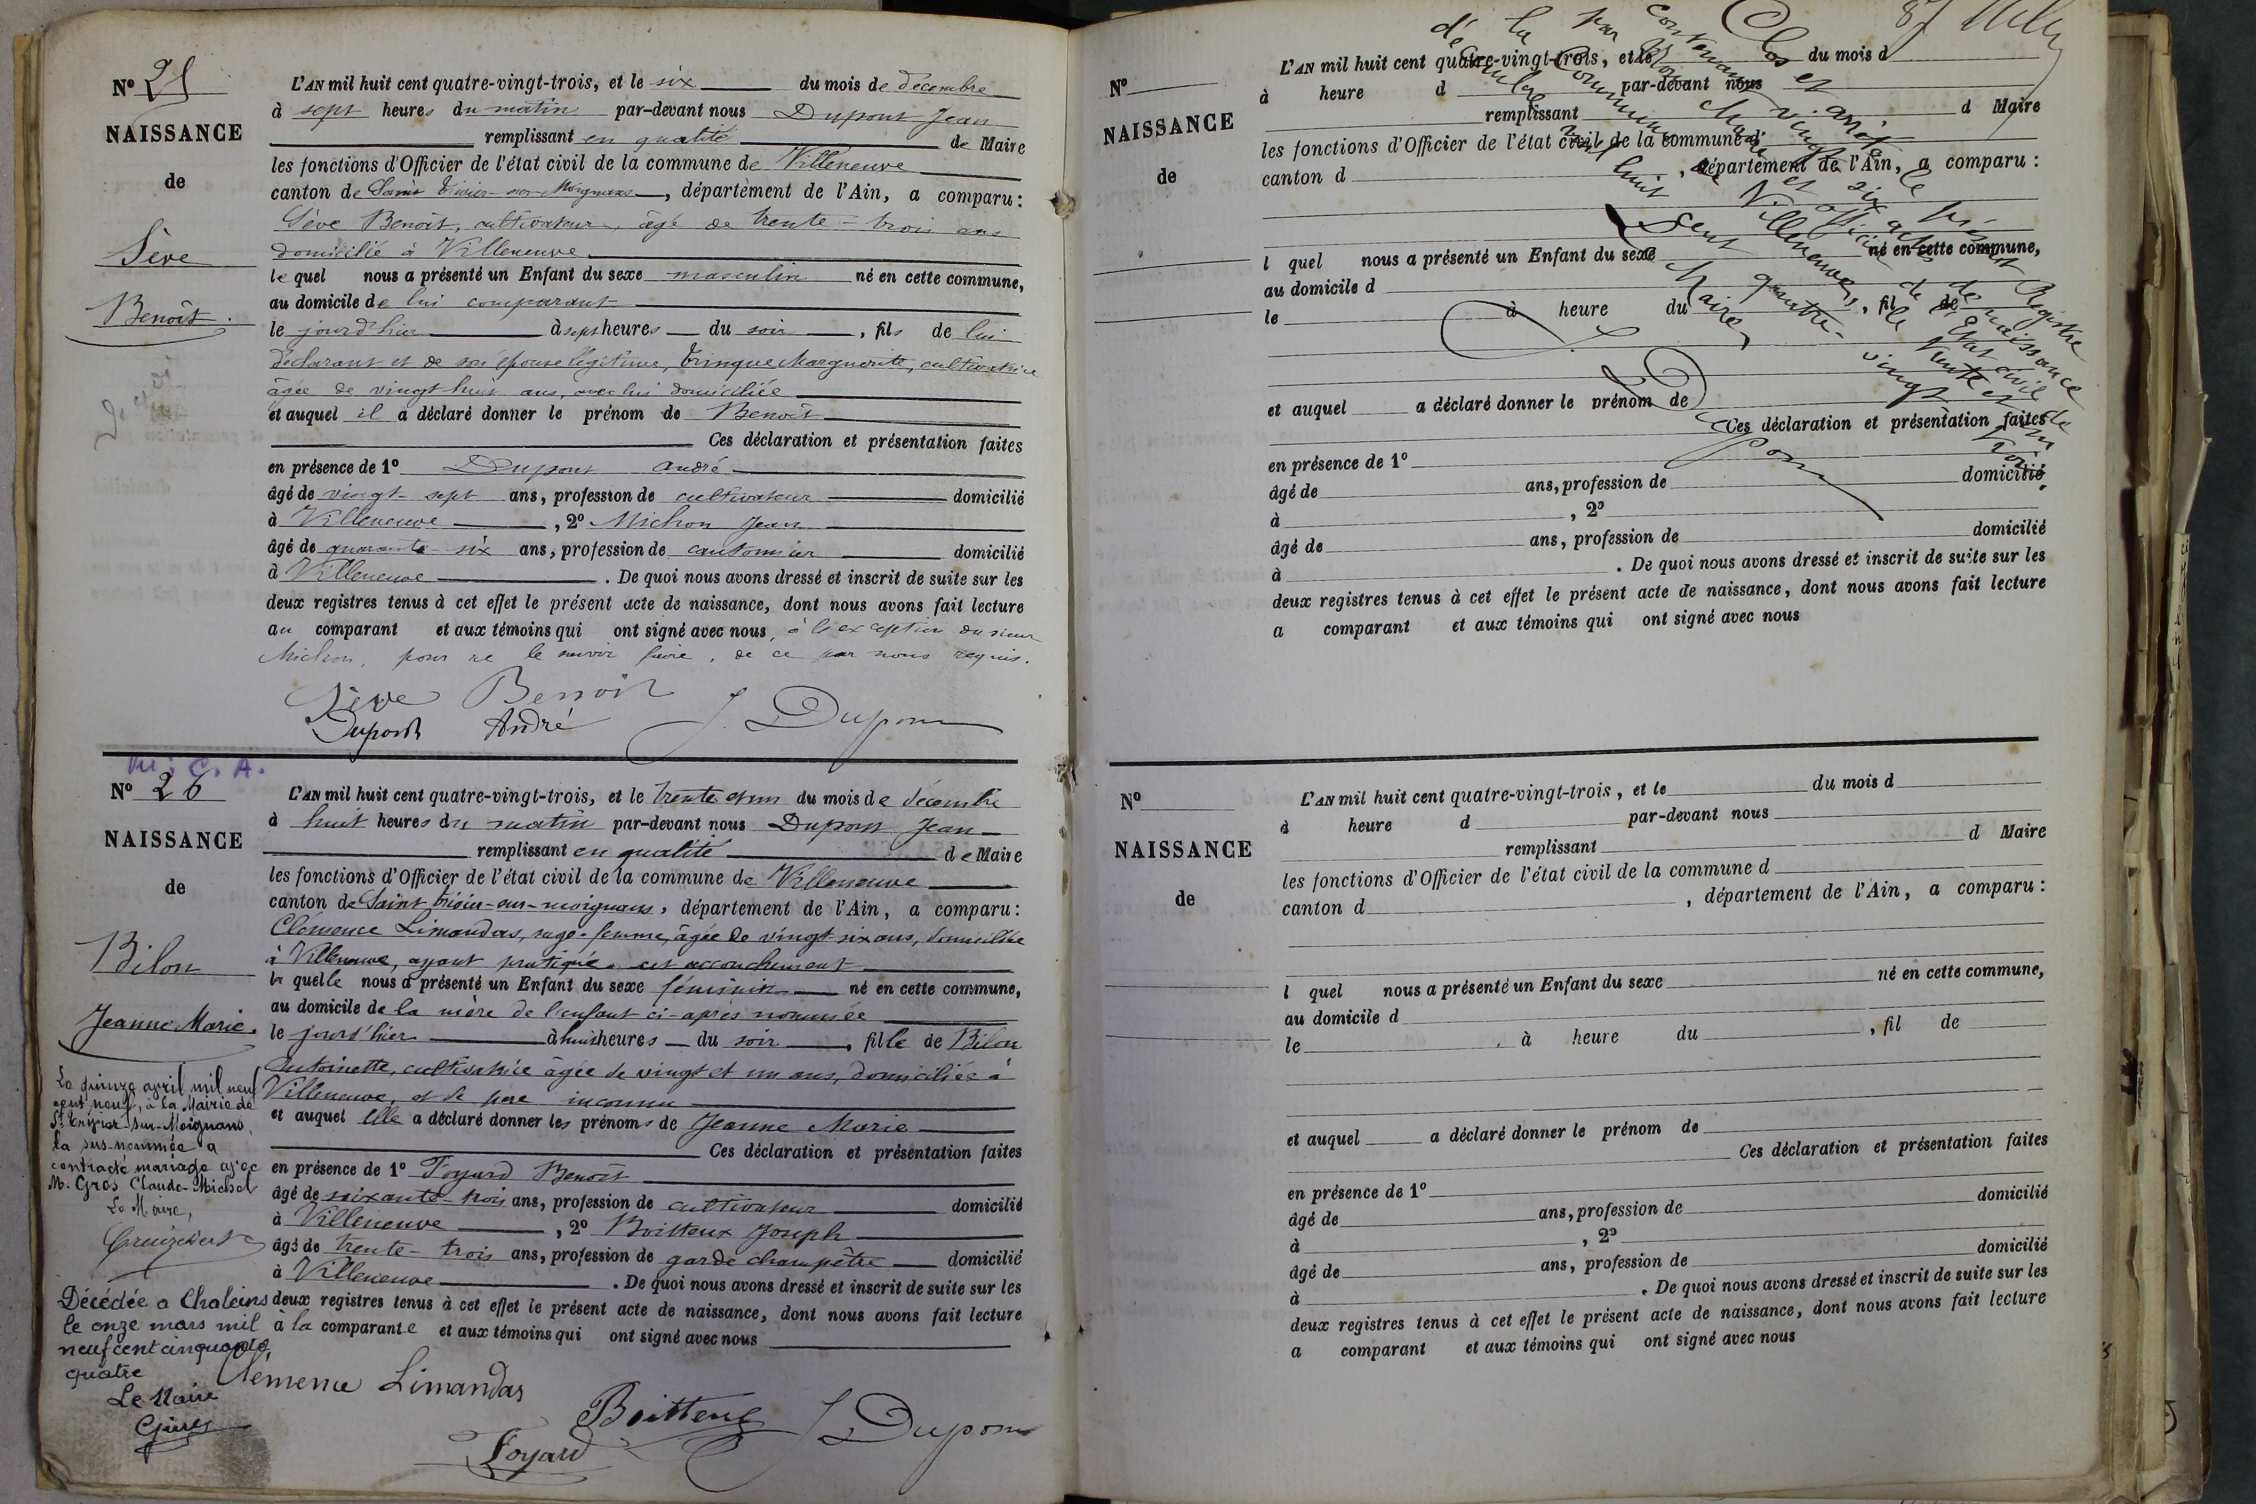 Nº 25
NAISSANCE
de
Sève
Benoît.
L'AN mil huit cent quatre-vingt-trois, et le six du mois de décembre
à sept heures du matin par-devant nous Dupont Jean
remplissant en qualité de Maire
les fonctions d'Officier de l'état civil de la commune de Villeneuve
canton de Saint Trivier-sur-Moignans, département de l'Ain, a comparu:
Sève Benoît, cultivateur, âgé de trente-trois ans
domicilié à Villeneuve
lequel nous a présenté un Enfant du sexe masculin né en cette commune,
au domicile de lui comparant
le jourd'hier à sept heures du soir, fils de lui
déclarant et de son épouse légitime, Marguerite, cultivatrice
âgée de vingt huit ans, avec lui domiciliée
et auquel il a déclaré donner le prénom de Benoît
Ces déclaration et présentation faites
en présence de 1º Dupont André
âgé de vingt-sept ans, profession de cultivateur domicilié
à Villeneuve, 2º Michon Jean
âgé de quarante-six ans, profession de cantonnier domicilié
à Villeneuve. De quoi nous avons dressé et inscrit de suite sur les
deux registres tenus à cet effet le présent acte de naissance, dont nous avons fait lecture
au comparant et aux témoins qui ont signé avec nous, à l'exception du sieur
Michon, pour ne le savoir faire, de ce par nous requis.
Sève Benoit
Dupont André J. Dupont
M. C. A.
Nº 26
NAISSANCE
de
Bilon
Jeanne Marie.
L'AN mil huit cent quatre-vingt-trois, et le trente et un du mois de décembre
à huit heures du matin par-devant nous Dupont Jean
remplissant en qualité de Maire
les fonctions d'Officier de l'état civil de la commune de Villeneuve
canton de Saint Trivier-sur-moignans, département de l'Ain, a comparu:
Clémence Limandas, sage-femme, âgée de vingt six ans, domiciliée
à Villeneuve, ayant pratiqué cet accouchement
laquelle nous a présenté un Enfant du sexe féminin né en cette commune,
au domicile de la mère de l'enfant ci-après nommée
le jourd'hier à huit heures du soir, fille de Bilon
Antoinette, cultivatrice âgée de vingt et un ans, domiciliée à
Villeneuve, et de père inconnu
et auquel elle a déclaré donner les prénoms de Jeanne Marie
Ces déclaration et présentation faites
en présence de 1º Foyard Benoît
âgé de soixante-trois ans, profession de cultivateur domicilié
à Villeneuve, 2º Boitteux Joseph
âgé de trente-trois ans, profession de garde champêtre domicilié
à Villeneuve. De quoi nous avons dressé et inscrit de suite sur les
deux registres tenus à cet effet le présent acte de naissance, dont nous avons fait lecture
à la comparante et aux témoins qui ont signé avec nous
Clémence Limandas
Boitteux J Dupont
Foyard
Le quinze avril mil neuf
cent neuf, à la Mairie de
St Trivier-sur-Moignans,
la sus-nommée a
contracté mariage avec
M. Gros Claude-Michel
Le Maire,
Décédée a Chaleins
le onze mars mil
neuf cent cinquante
quatre
Le Maire
Nº
NAISSANCE
de
L'AN mil huit cent quatre-vingt-trois, et le du mois d
à heure d par-devant nous
remplissant d Maire
les fonctions d'Officier de l'état civil de la commune d
canton d , département de l'Ain, a comparu:
l quel nous a présenté un Enfant du sexe né en cette commune,
au domicile d
le à heure du , fil de
et auquel a déclaré donner le prénom de
Ces déclaration et présentation faites
en présence de 1º
âgé de ans, profession de domicilié
à , 2º
âgé de ans, profession de domicilié
à . De quoi nous avons dressé et inscrit de suite sur les
deux registres tenus à cet effet le présent acte de naissance, dont nous avons fait lecture
a comparant et aux témoins qui ont signé avec nous
Clos et arrêté le présent Registre
contenant vingt six actes de naissance
par Nous Maire et officier de l'Etat civil de
la Commune de Villeneuve, le trente et un
décembre mil huit cent quatre-vingt trois.
Le Maire
J. Dupont
Nº
NAISSANCE
de
L'AN mil huit cent quatre-vingt-trois, et le du mois d
à heure d par-devant nous
remplissant d Maire
les fonctions d'Officier de l'état civil de la commune d
canton d , département de l'Ain, a comparu:
l quel nous a présenté un Enfant du sexe né en cette commune,
au domicile d
le à heure du , fil de
et auquel a déclaré donner le prénom de
Ces déclaration et présentation faites
en présence de 1º
âgé de ans, profession de domicilié
à , 2º
âgé de ans, profession de domicilié
à . De quoi nous avons dressé et inscrit de suite sur les
deux registres tenus à cet effet le présent acte de naissance, dont nous avons fait lecture
a comparant et aux témoins qui ont signé avec nous